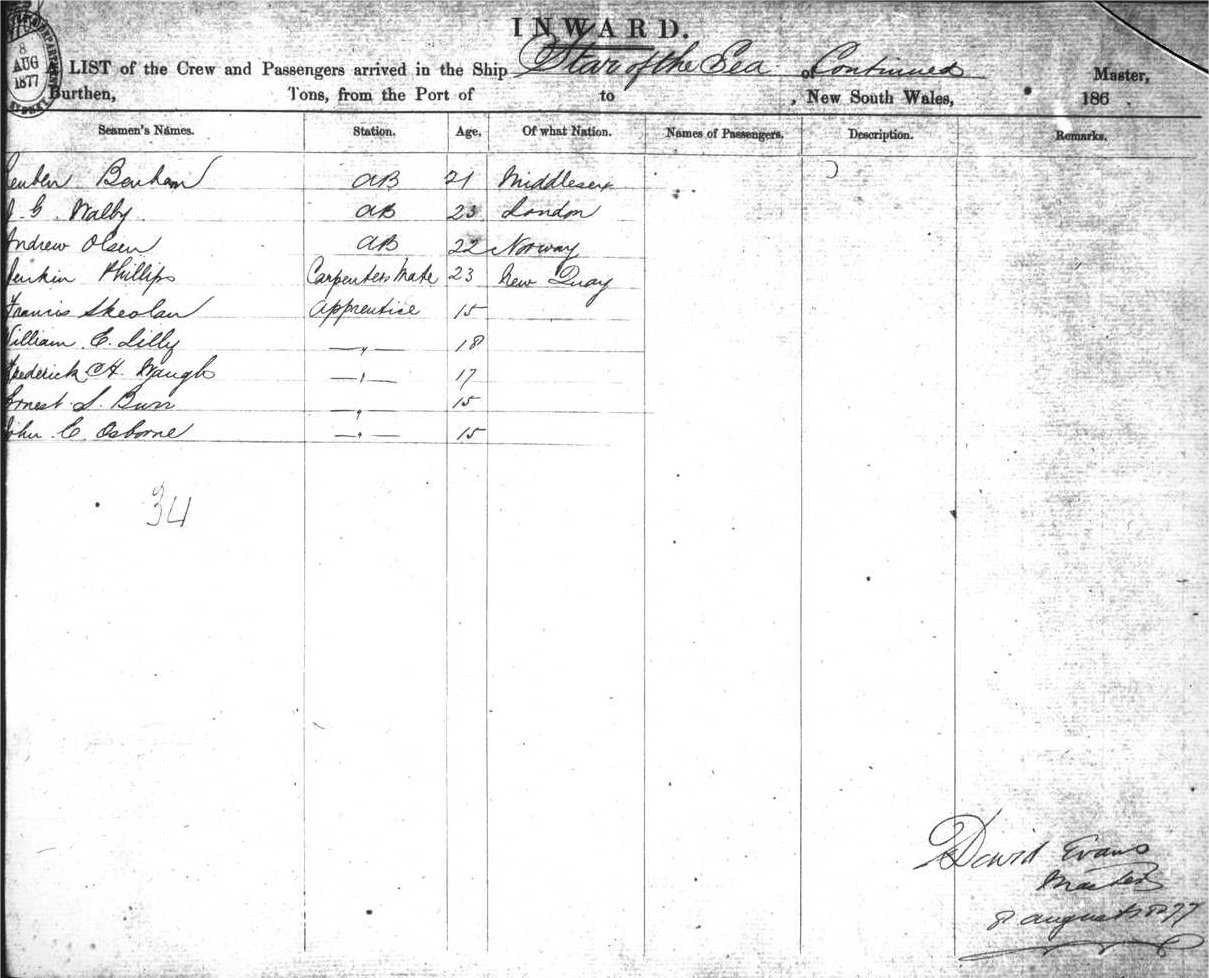 8
AUG
1877
SYDNEY
INWARD.
LIST of the Crew and Passengers arrived in the Ship Star of the Sea of Continued Master,
Burthen, Tons, from the Port of to , New South Wales, 186 .
Seamen's Names. Station. Age. Of what Nation. Names of Passengers. Description. Remarks.
Reuben Benham AB 21 Middlesex
G. Walby AB 23 London
Andrew Olsen AB 22 Norway
Jenkin Phillips Carpenters Mate 23 New Quay
Francis Skeolan Apprentice 15
William C. Lilly —"— 18
Frederick H. Waugh —"— 17
Ernest S. Burr " 15
John C. Osborne —"— 15
34
David Evans
Master
8 August 1877